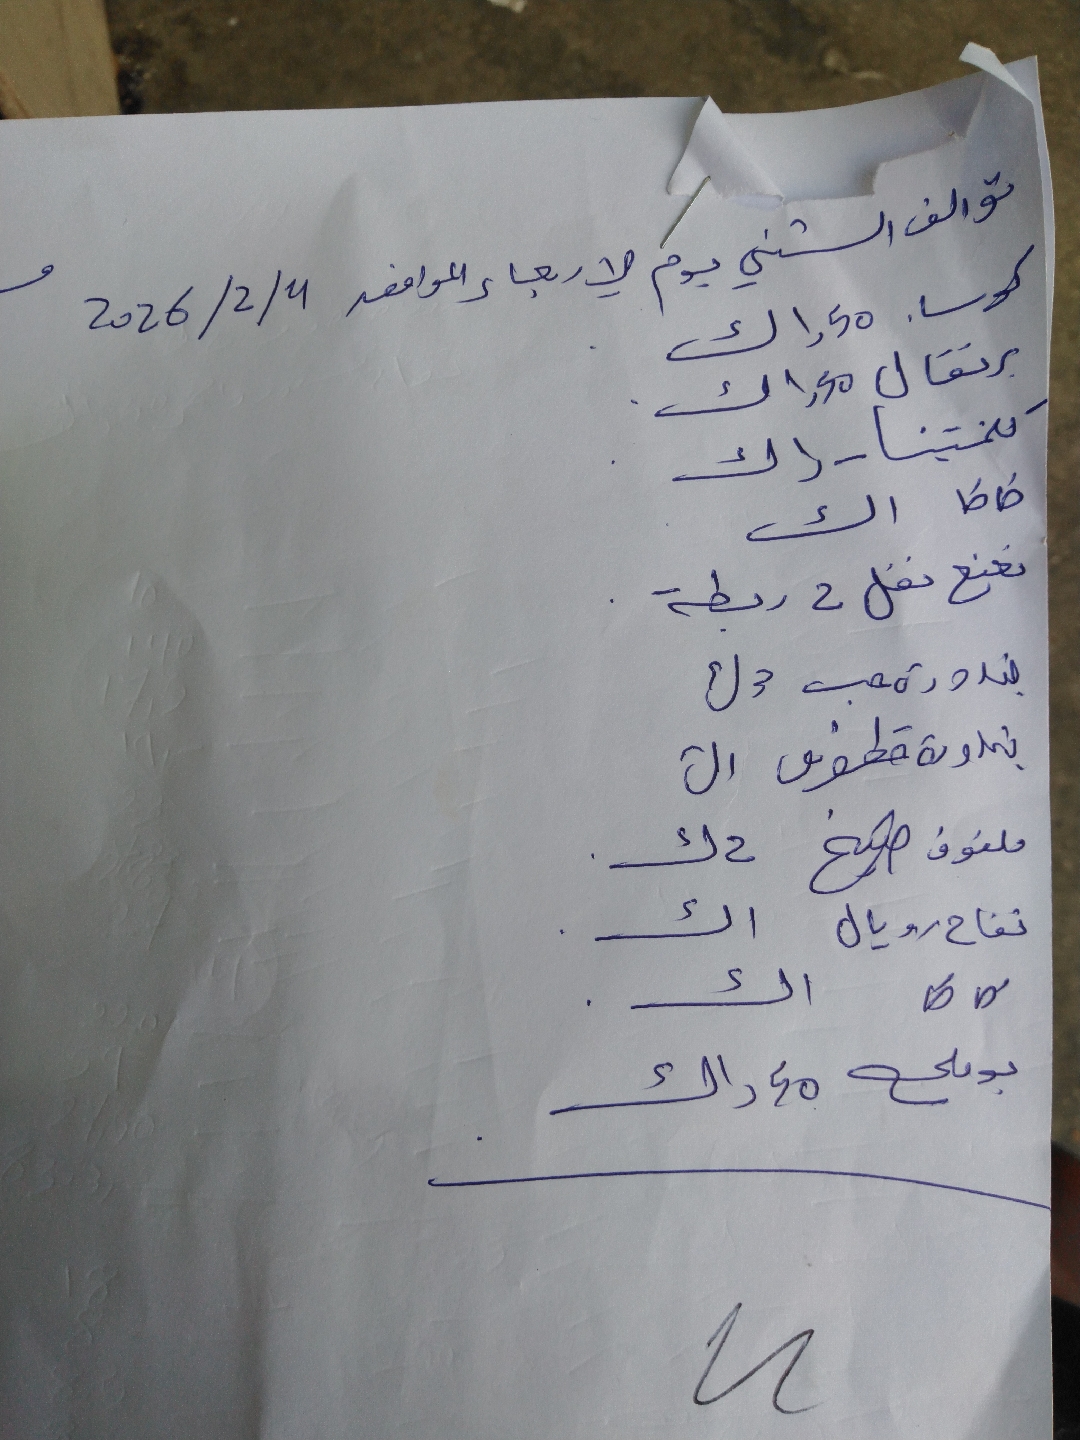 توالف الشتني يوم الاربعاء الموافق 2026/2/4 م
كوسا. 1,50ك
برتقال 1,50ك
كلمنتينا - 1ك
كاكا 1ك
نعنع نفل 2 ربطة
بندورة حب 3ك
بندورة 1ك
ملفوف 2ك
تفاح رويال 1ك
كاكا 1ك
بوملي 1,50ك